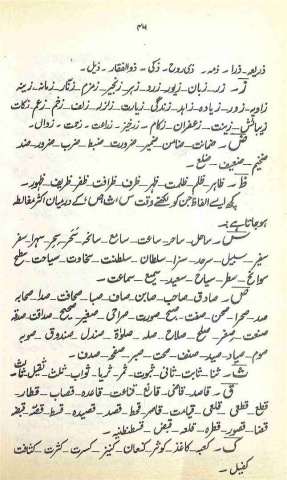 ۳۸
ذریعہ۔ ذرا۔ ذمہ۔ ذی روح۔ ذکی۔ ذوالفقار۔ ذیل۔
ز۔ زر۔ زبان۔ زیور۔ زرد۔ زہر۔ زنجیر۔ زمزم۔ زنگار۔ زمانہ۔ زینہ
زاویہ۔ زور۔ زیادہ۔ زاہد۔ زندگی۔ زیارت۔ زلزلہ۔ زلف۔ زخم۔ زعم۔ زکات
زیبائش۔ زینت۔ زعفران۔ زکام۔ زرخیز۔ زراعت۔ زحمت۔ زوال۔
ض۔ ضمانت۔ ضامن۔ ضمیر۔ ضرورت۔ ضبط۔ ضرب۔ ضرور۔ ضد
ضخیم۔ ضعیف۔ ضلع۔
ظ۔ ظاہر۔ ظلم۔ ظلمت۔ ظہر۔ ظرف۔ ظرافت۔ ظفر۔ ظریف۔ ظہور۔
کچھ ایسے الفاظ جن کو لکھتے وقت س، ث، ص کے درمیان اکثر مغالطہ
ہو جاتا ہے :۔
س۔ ساحل۔ ساحر۔ ساعت۔ سامع۔ سانحہ۔ سحر۔ سحر۔ سہرا۔ سفر
سفیر۔ سبیل۔ سرحد۔ سزا۔ سلطان۔ سلطنت۔ سخاوت۔ سیاحت۔ سطح
سوانح۔ سطر۔ سیاح۔ سعید۔ سمیع۔ سماعت۔
ص۔ صادق۔ صاحب۔ صابن۔ صاف۔ صبا۔ صحافت۔ صدا۔ صحابہ
صد۔ صحرا۔ صحن۔ صف۔ صبح۔ صورت۔ صراحی۔ صغیر۔ صحیح۔ صداقت۔ صدقہ
صنعت۔ صفر۔ صلح۔ صلاح۔ صلہ۔ صلواۃ۔ صندل۔ صندوق۔ صوبہ
صوم۔ صیاد۔ صید۔ صنف۔ صحت۔ صبر۔ صفحہ۔ صدف۔
ث۔ ثنا۔ ثابت۔ ثانی۔ ثبوت۔ ثمر۔ ثریا۔ ثواب۔ ثلث۔ ثقیل۔
ق۔ قاصد۔ قاضی۔ قانع۔ قناعت۔ قاعدہ۔ قصاب۔ قطار۔
قطع۔ قطعی۔ قلعی۔ قیامت۔ قاصر۔ قحط۔ قصد۔ قصیدہ۔ قسط۔ قصہ۔ قبضہ
قضا۔ قصور۔ قطرہ۔ قلعہ۔ قبض۔ قسطنطنیہ۔
ک۔ کعبہ۔ کاغذ۔ کوثر۔ کنعان۔ کنیز۔ کسرت۔ کثرت۔ کثافت
کفیل۔